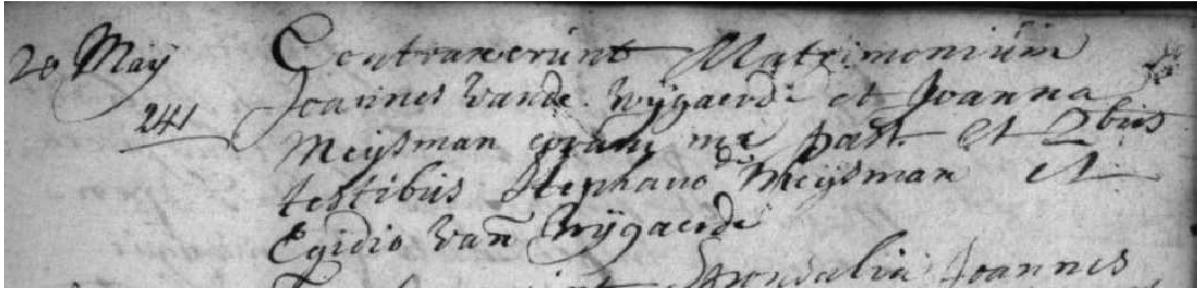 20 Maÿ Contraxerunt Matrimonium
Joannes Vande Wÿgaerde et Joanna
241
Meÿsman coram me past. et 2bus
testibus Stephano Meÿsman et
Egidio Van Wÿgaerde
Sponsalia Joannes